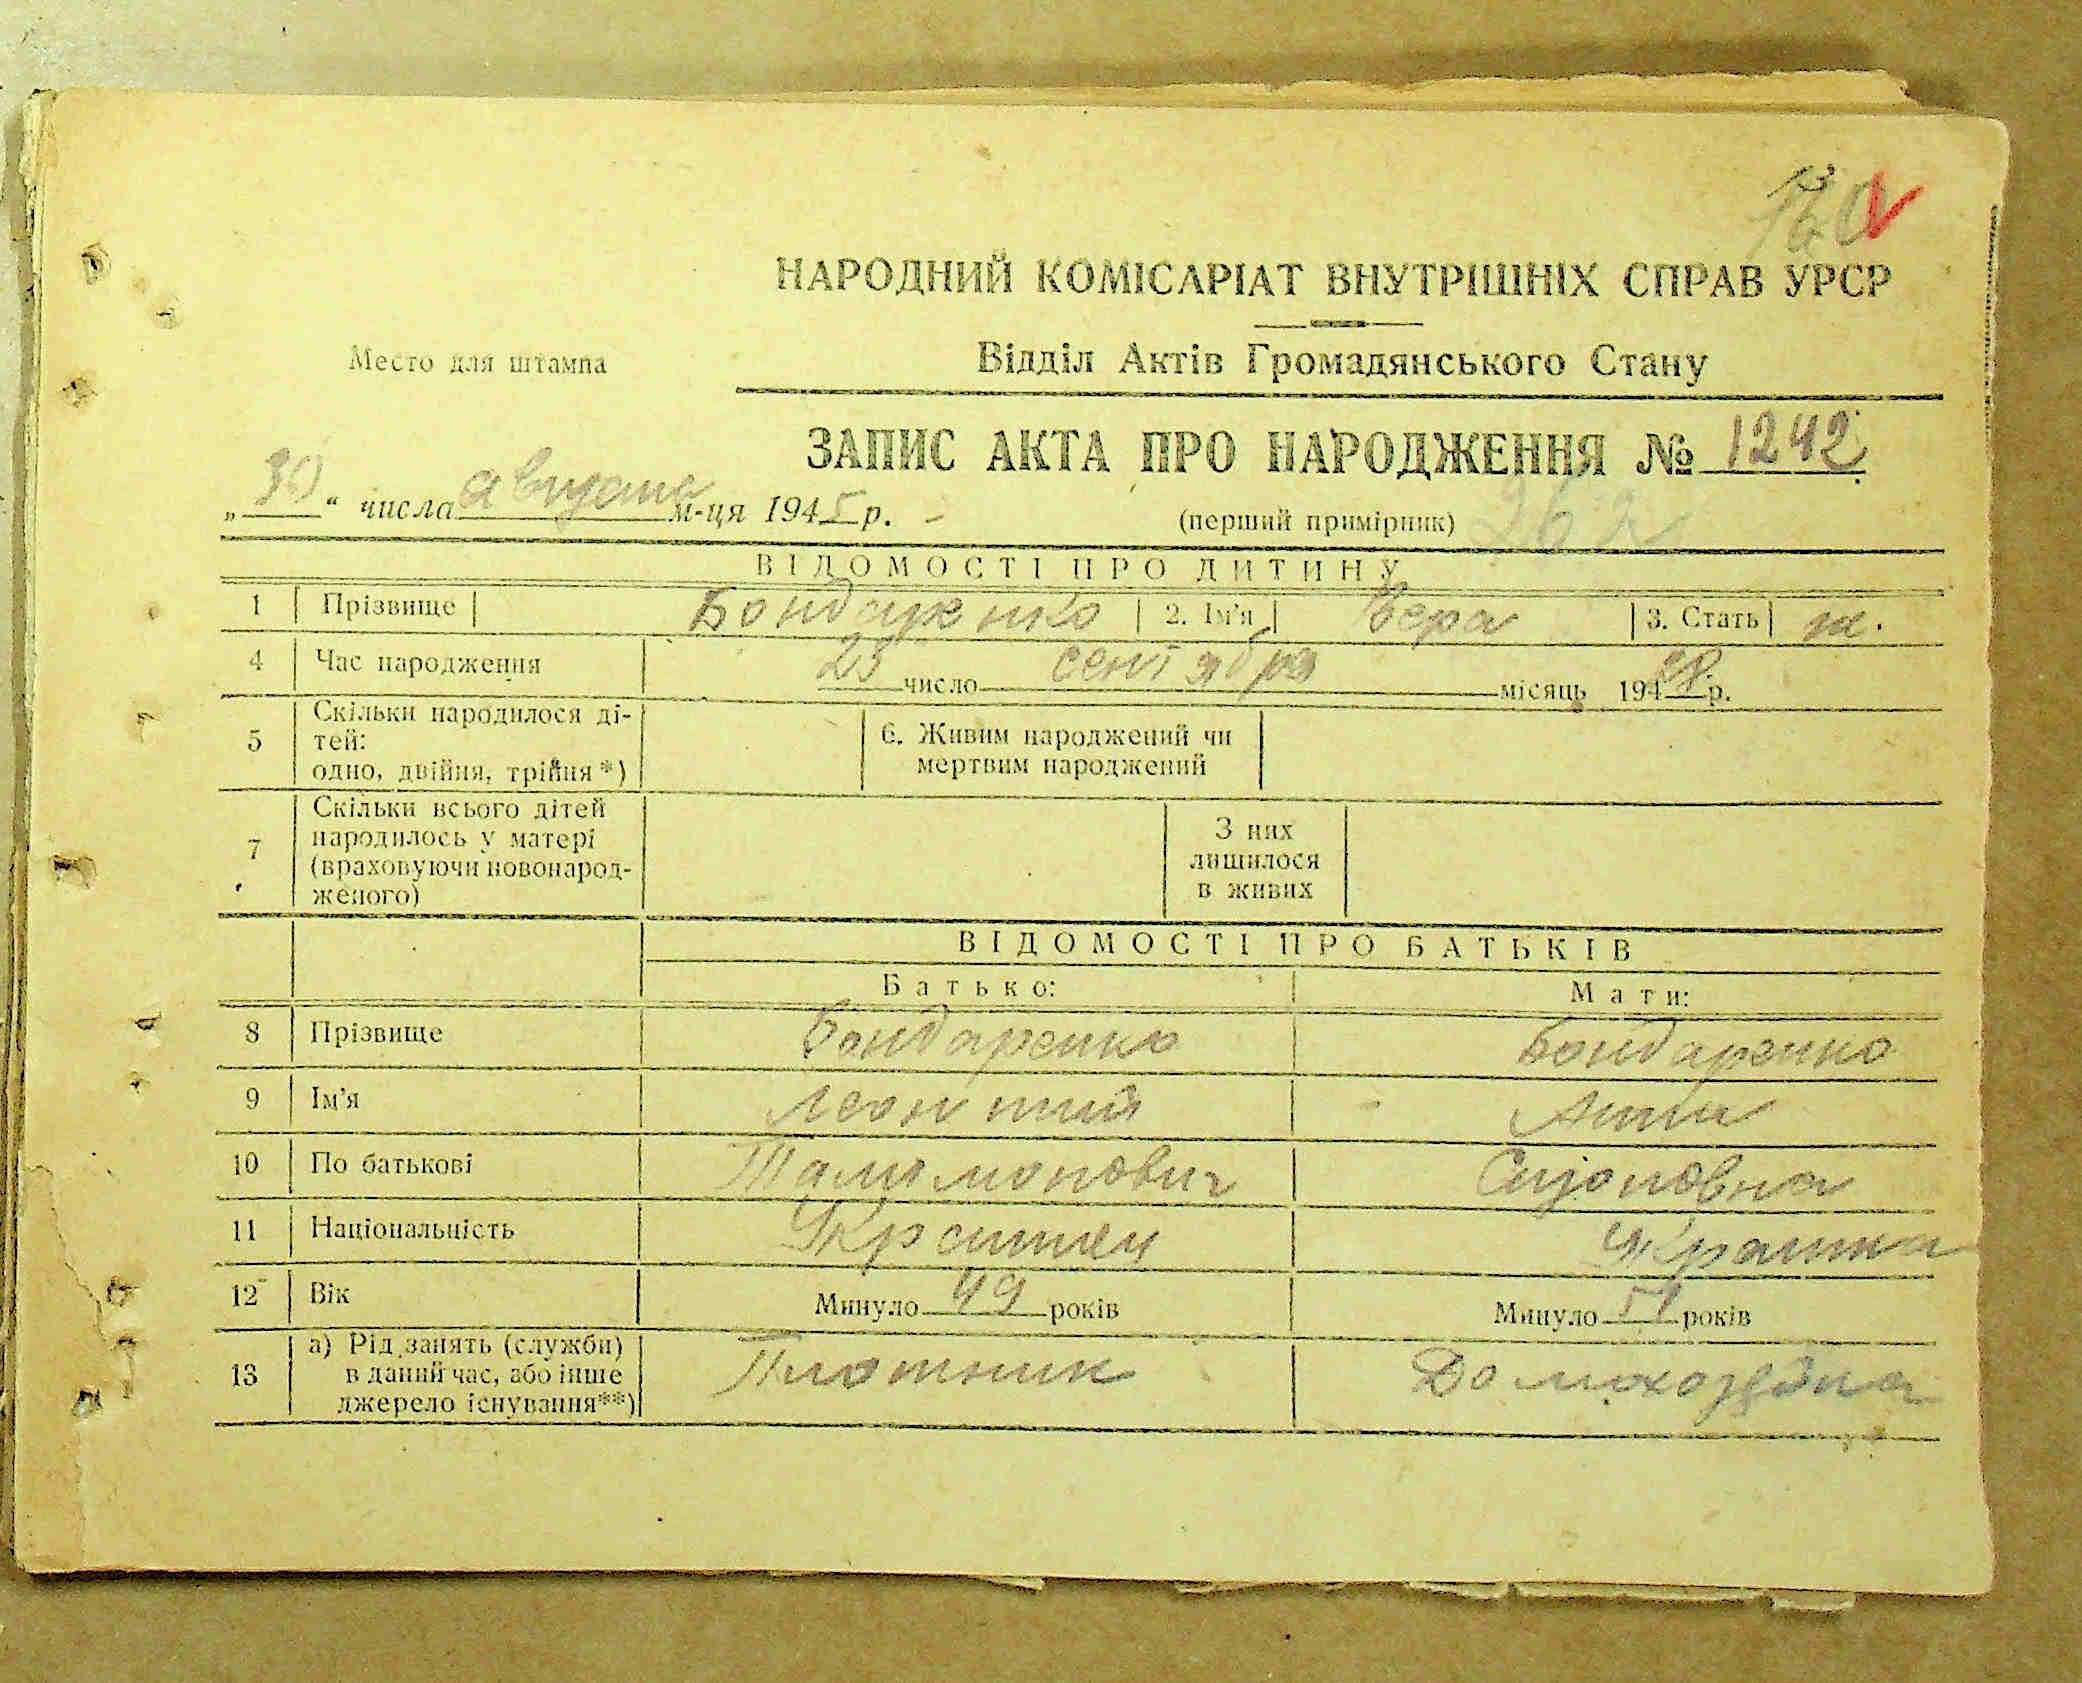 НАРОДНИЙ КОМІСАРІАТ ВНУТРІШНІХ СПРАВ УРСР
Место для штампа
Відділ Актів Громадянського Стану
ЗАПИС АКТА ПРО НАРОДЖЕННЯ № 1242
„30“ числа августа м-ця 1945 р.
(перший примірник) 262
ВІДОМОСТІ ПРО ДИТИНУ
1 Прізвище Бондаренко 2. Ім'я Вера 3. Стать ж.
4 Час народження 25 число сентября місяць 194 28 р.
5 Скільки народилося ді-
тей:
одно, двійня, трійня*)
6. Живим народжений чи
мертвим народжений
7 Скільки всього дітей
народилось у матері
(враховуючи новонарод-
женого)
З них
лишилося
в живих
ВІДОМОСТІ ПРО БАТЬКІВ
Батько: Мати:
8 Прізвище Бондаренко Бондаренко
9 Ім'я Леонтий Анна
10 По батькові
11 Національність Украинец Украинка
12 Вік Минуло 49 років Минуло 51 років
13 а) Рід занять (служби)
в даний час, або інше
джерело існування**)
Плотник Домохозяйка